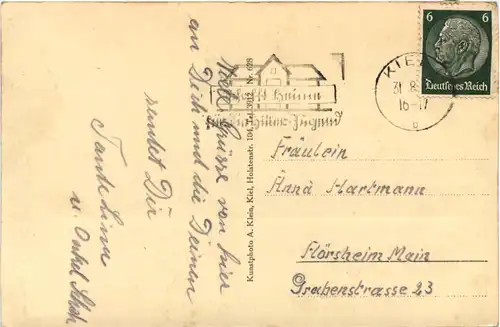 Viele Grüsse von hier
an Dich und die Deinen
sendet Dir
Tante Lina
u. Onkel
Kunstphoto A. Klein, Kiel, Holstenstr. 104, Tel. 3011 Nr. 628
Hitler-Jugend
KIEL
31. 8.
16-17
b
6 6
Deutsches Reich
Fräulein
Änna Hartmann
Flörsheim Main
Grabenstrasse 23